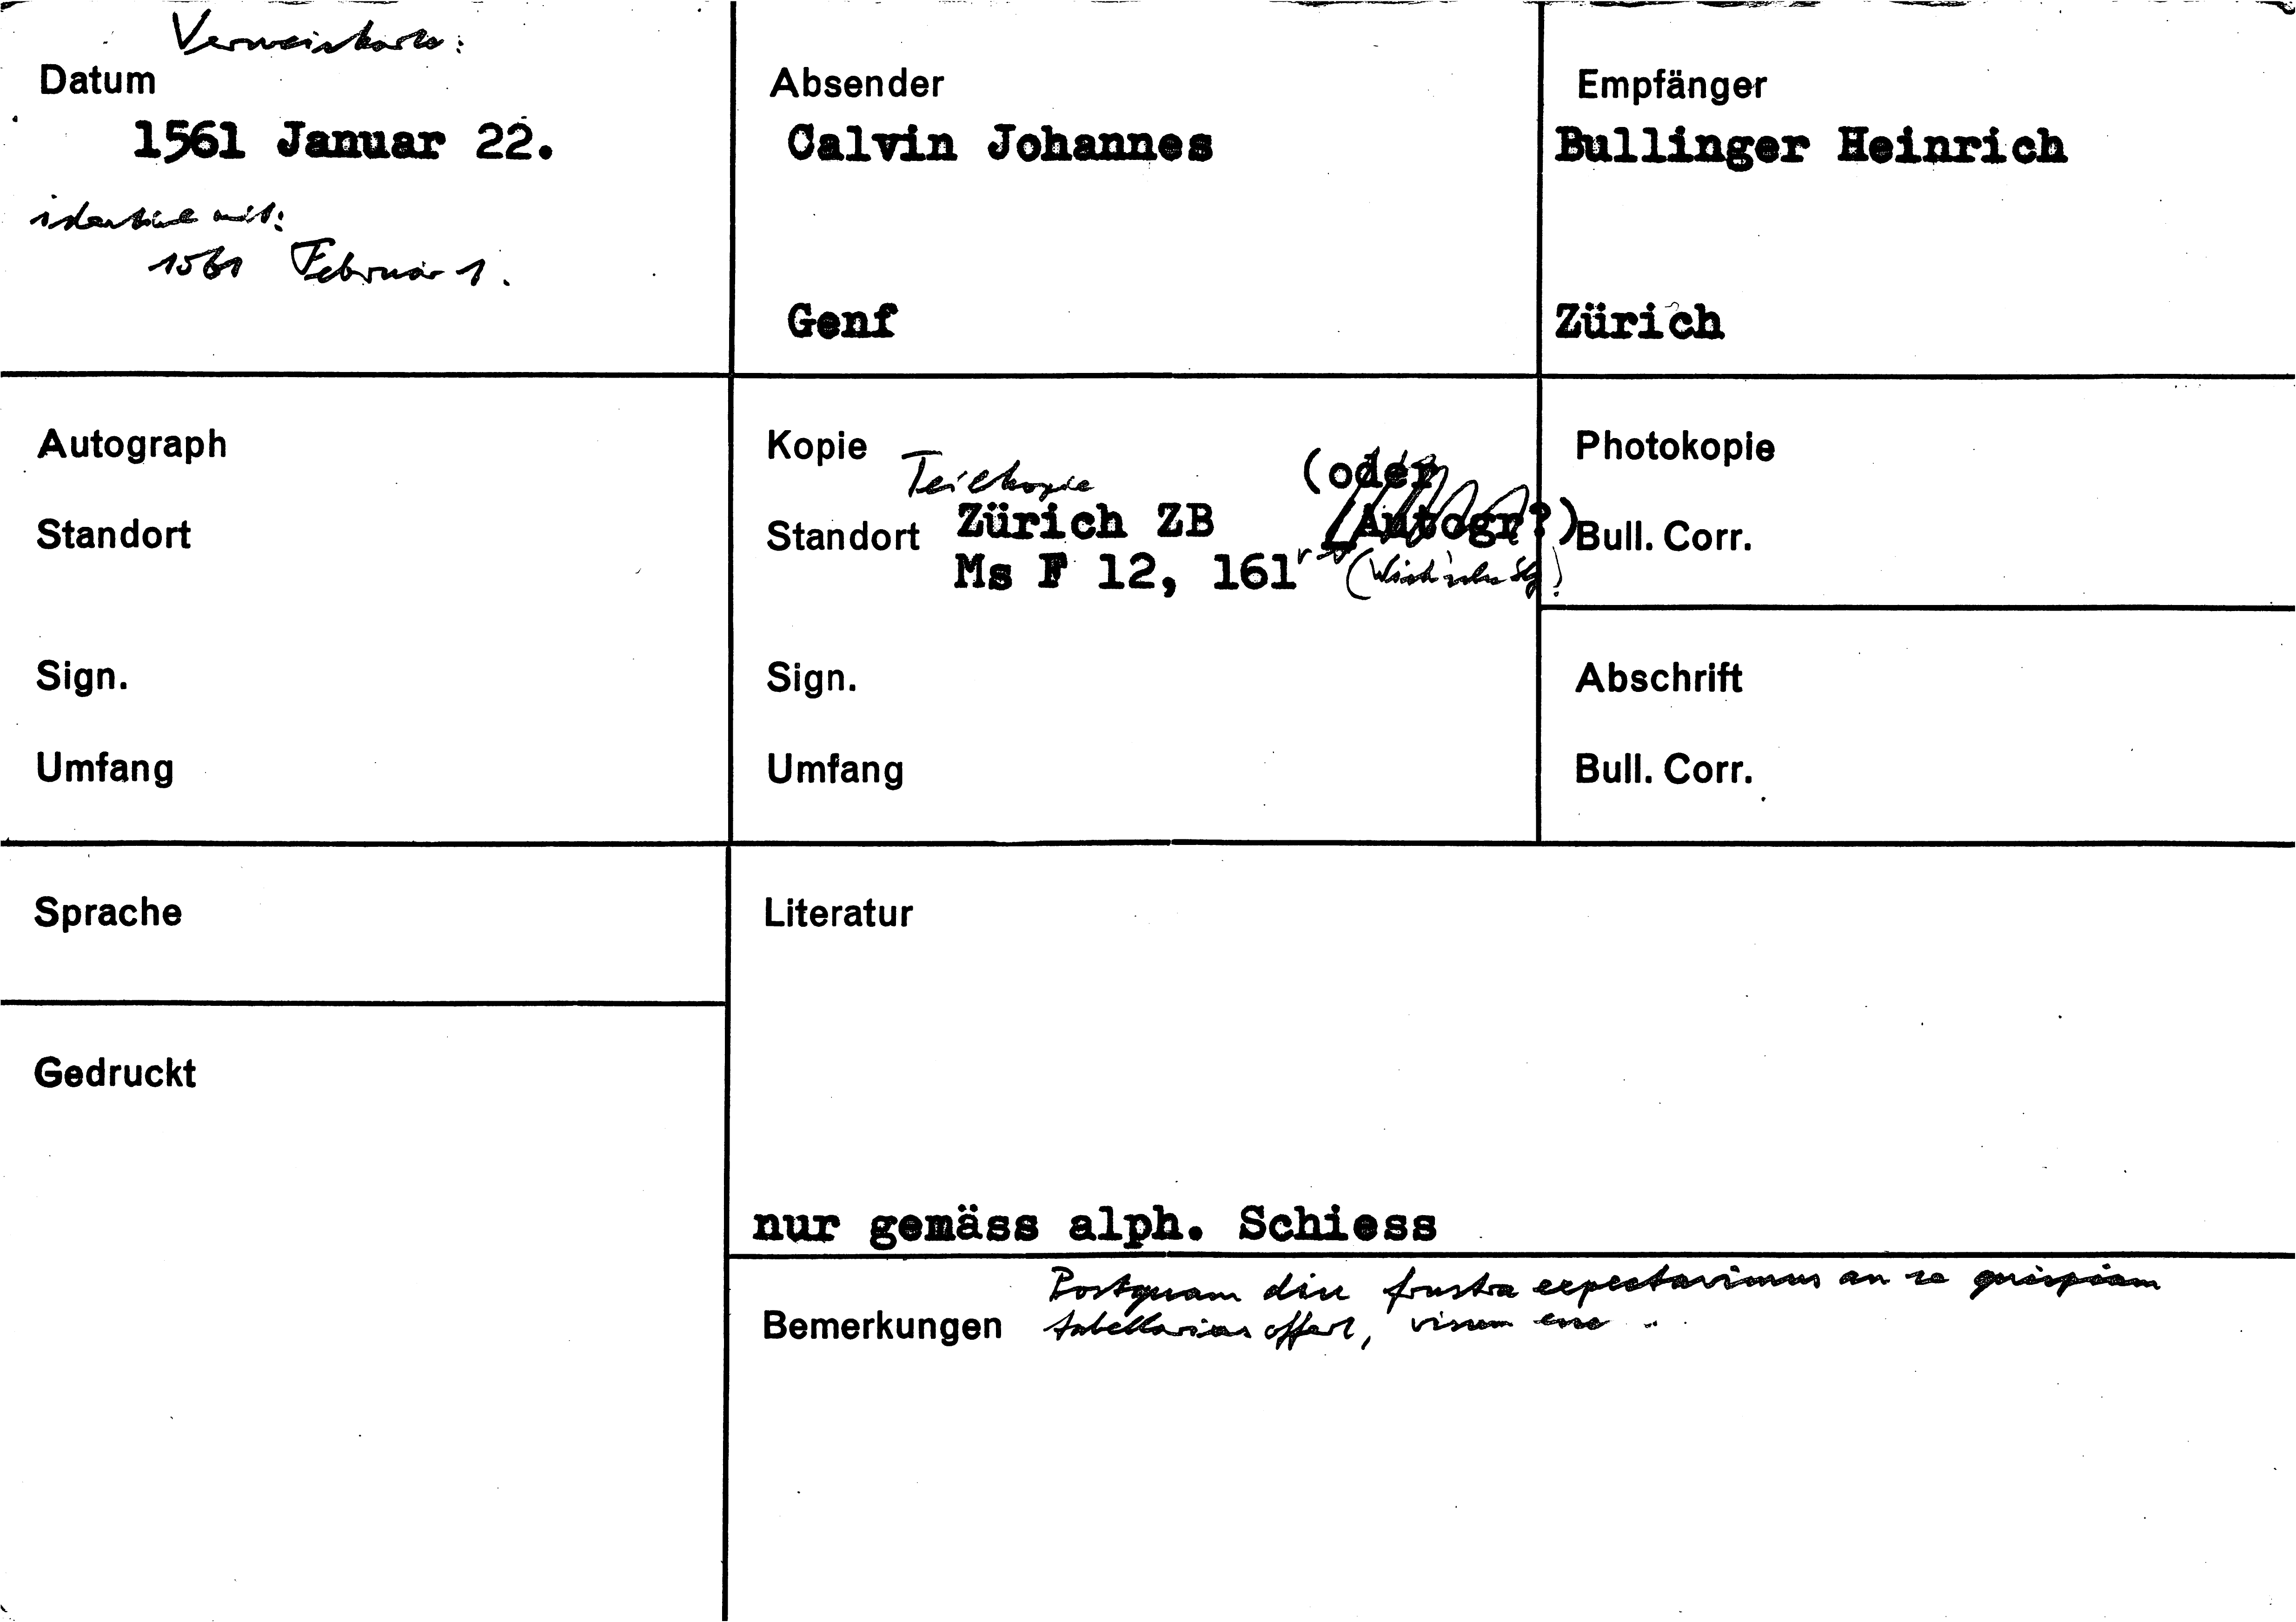 Verweiskarte:
Datum
1561 Januar 22.
identisch mit:
1561 Februar 1.
Absender
Calvin Johannes
Genf
Empfänger
Bullinger Heinrich
Zürich
Autograph
Standort
Sign.
Umfang
Kopie
Teilkopie
(oder
Standort Zürich ZB Autogr?)
Ms F 12, 161r
Sign.
Umfang
Photokopie
Bull. Corr.
Abschrift
Bull. Corr.
Sprache
Gedruckt
Literatur
nur gemäss alph. Schiess
Postquam diu frustra expectavimus an se quispiam
Bemerkungen tabellarius offert, visum esse ..